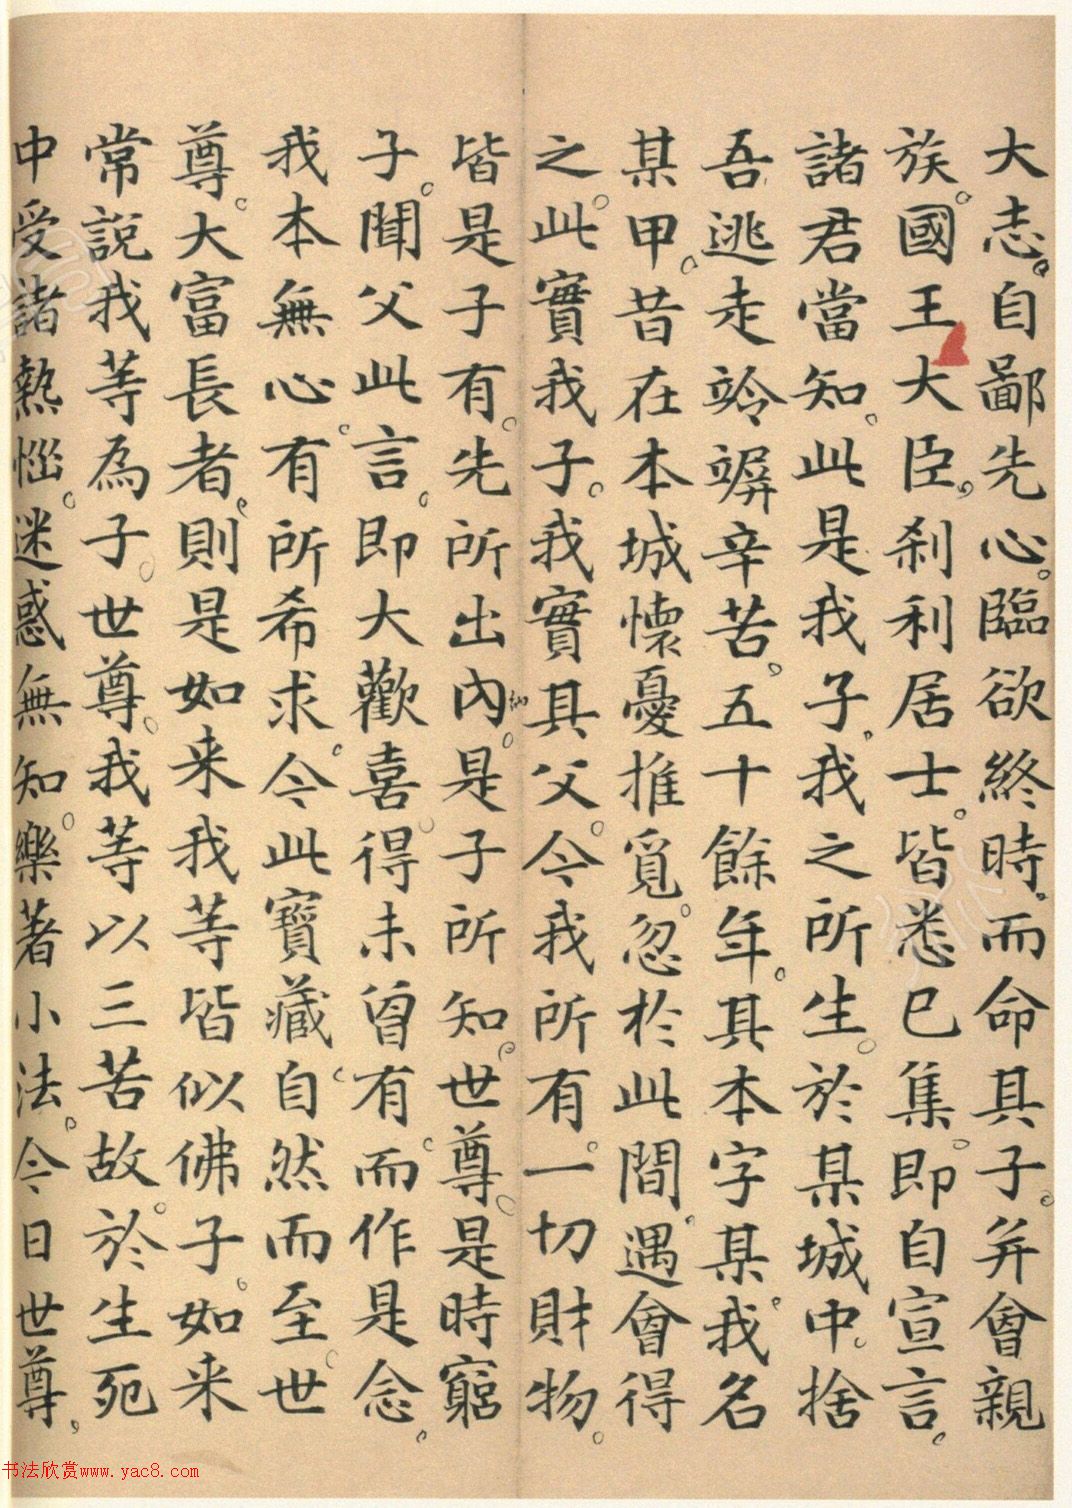 大志。自鄙先心。臨欲終時。而命其子。并會親
族。國王大臣。刹利居士。皆悉已集。即自宣言。
諸君當知。此是我子。我之所生。於某城中。捨
吾逃走。竛竮辛苦。五十餘年。其本字某。我名
某甲。昔在本城。懷憂推覓。忽於此間。遇會得
之。此實我子。我實其父。今我所有。一切財物。
皆是子有。先所出內。是子所知。世尊。是時窮
子。聞父此言。即大歡喜。得未曾有。而作是念。
我本無心。有所希求。今此寶藏。自然而至。世
尊。大富長者。則是如来。我等皆似佛子。如来
常說我等為子。世尊。我等以三苦故。於生死
中受諸熱惱。迷惑無知。樂著小法。今日世尊。
书法欣赏www.yac8.com